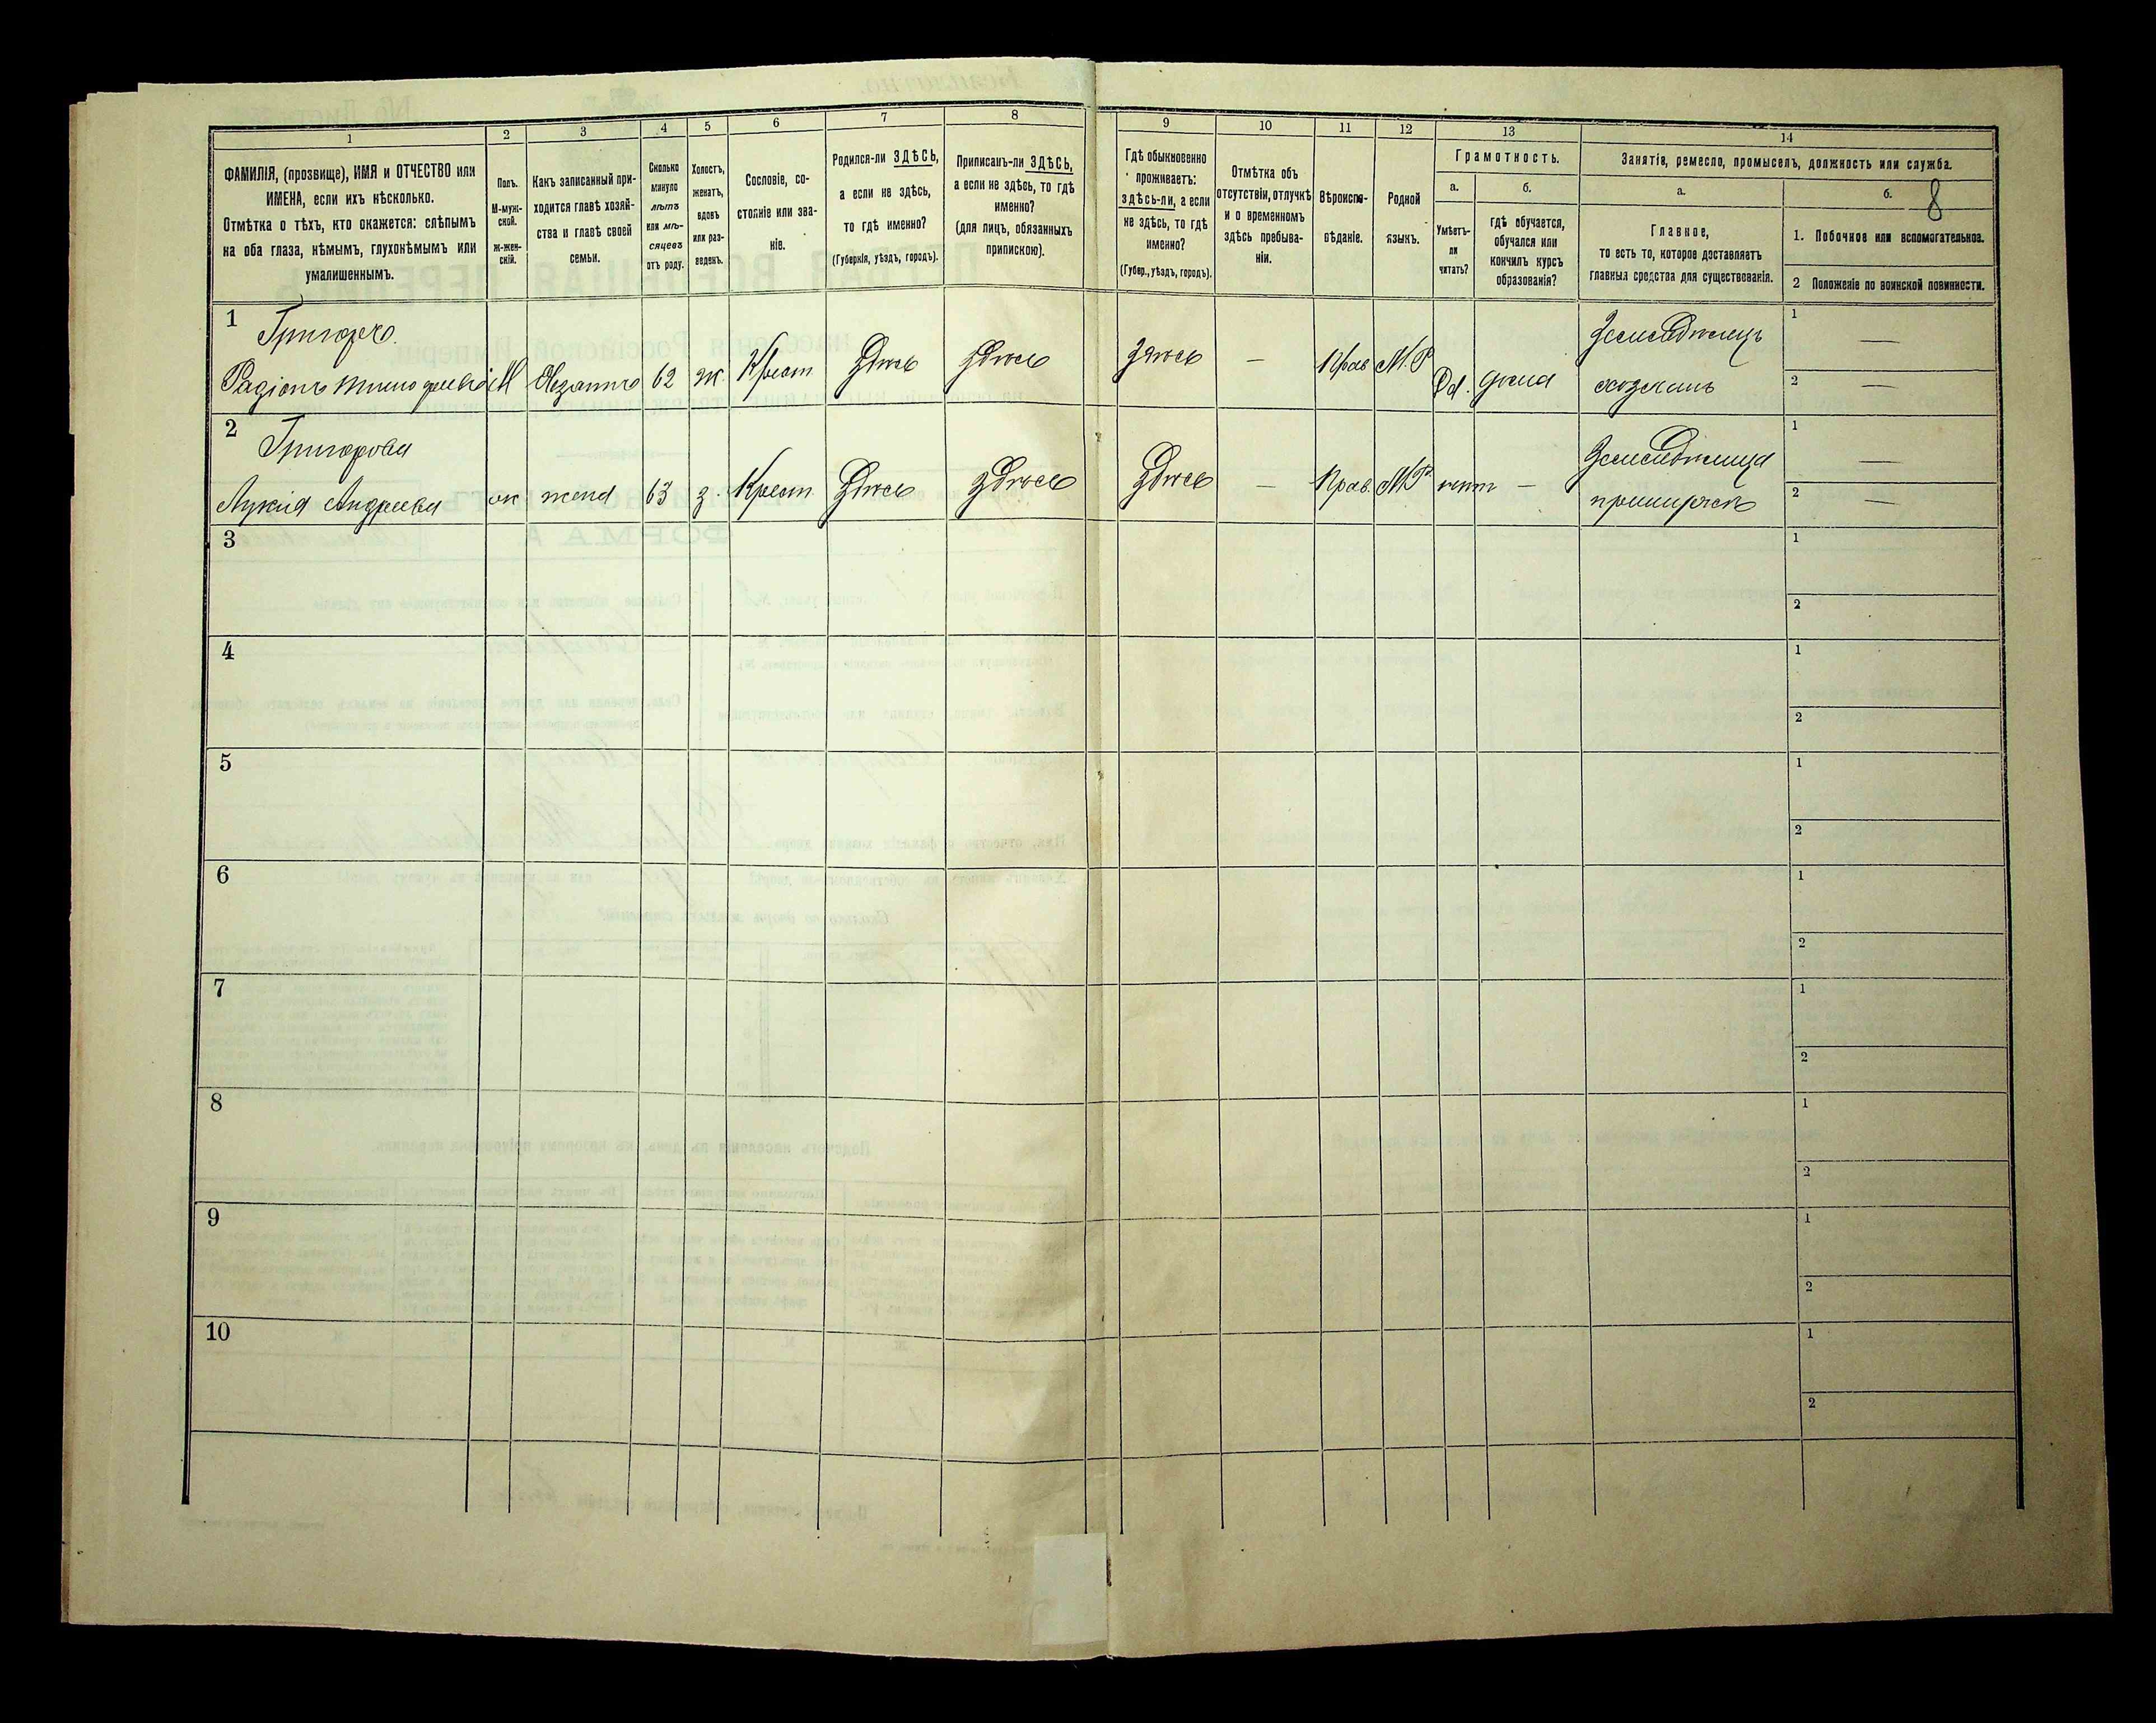 1
2
3
4
5
6
7
8
9
10
11
12
13
14
ФАМИЛІЯ, (прозвище), ИМЯ и ОТЧЕСТВО или
ИМЕНА, если ихъ нѣсколько.
Отмѣтка о тѣхъ, кто окажется: слѣпымъ
на оба глаза, нѣмымъ, глухонѣмымъ или
умалишеннымъ.
Полъ.
М-муж-
ской.
Ж-жен-
скій.
Какъ записанный при-
ходится главѣ хозяй-
ства и главѣ своей
семьи.
Сколько
минуло
лѣтъ
или мѣ-
сяцевъ
отъ роду.
Холостъ,
женатъ,
вдовъ
или раз-
веденъ.
Сословіе, со-
стояніе или зва-
ніе.
Родился-ли ЗДѢСЬ,
а если не здѣсь,
то гдѣ именно?
(Губернія, уѣздъ, городъ).
Приписанъ-ли ЗДѢСЬ,
а если не здѣсь, то гдѣ
именно?
(для лицъ, обязанныхъ
припискою).
Гдѣ обыкновенно
проживаетъ:
здѣсь-ли, а если
не здѣсь, то гдѣ
именно?
(Губер., уѣздъ, городъ).
Отмѣтка объ
отсутствіи, отлучкѣ
и о временномъ
здѣсь пребыва-
ніи.
Вѣроиспо-
вѣданіе.
Родной
языкъ.
Грамотность.
а.
Умѣетъ-
ли
читать?
б.
гдѣ обучается,
обучался или
кончилъ курсъ
образованія?
Занятія, ремесло, промыселъ, должность или служба.
а.
Главное,
то есть то, которое доставляетъ
главныя средства для существованія.
б.
8
1. Побочное или вспомогательное.
2 Положеніе по воинской повинности.
1
Радіонъ
М
62 ж. Крест. Здѣсь здѣсь здѣсь — Прав М.Р
Да. дома
Земледѣлецъ
хозяинъ
1 —
2 —
2
Григорова
Лукія Андреева ж жена 63 з. Крест. Здѣсь здѣсь здѣсь — Прав. М.Р. нѣтъ —
Земледѣлица
при мужѣ
1 —
2 —
3
1
2
4
1
2
5
1
2
6
1
2
7
1
2
8
1
2
9
1
2
10
1
2